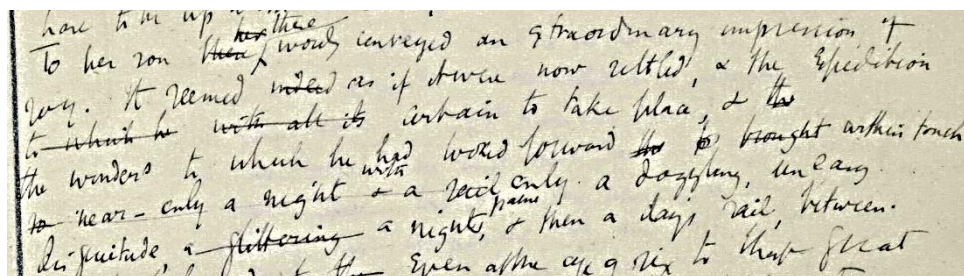 have to be up
To her son these words conveyed an extraordinary impression of
joy. It seemed indeed as if it were now settled, & the Expedition
to which he with all its certain to take place, & the
the wonders to which he had looked forward to brought within touch
so near - only a night with & a sail only. a dazzling, uneasy
disquietude, a glittering a night's pause, & then a days sail, between.
Even at the age of six to that great